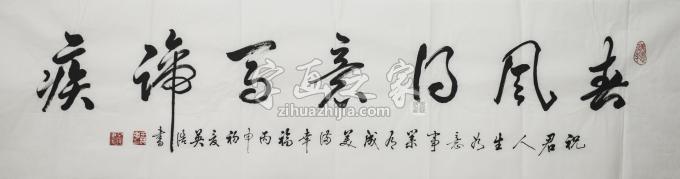 春风得意马蹄疾
祝君人生如意事業有成美满幸福丙申初夏英浩書
字画之家
zihuazhijia.com